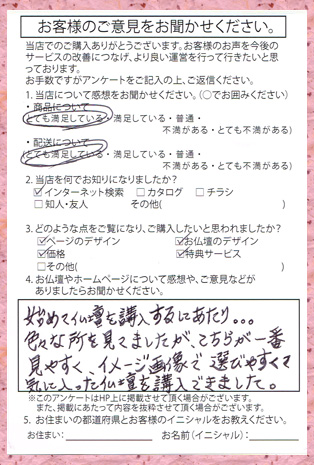 お客様のご意見をお聞かせください。
当店でのご購入ありがとうございます。お客様のお声を今後の
サービスの改善につなげ、より良い運営を行って行きたいと思
っております。
お手数ですがアンケートをご記入の上、ご返信ください。
1. 当店について感想をお聞かせください。(○でお囲みください)
・商品について
(とても満足している・満足している・普通・
不満がある・とても不満がある)
・配送について
(とても満足している・満足している・普通・
不満がある・とても不満がある)
2. 当店を何でお知りになりましたか?
☑インターネット検索 □カタログ □チラシ
□知人・友人 その他( )
3. どのような点をご覧になり、ご購入したいと思われましたか?
☑ページのデザイン ☑お仏壇のデザイン
☑価格 ☑特典サービス
□その他( )
4. お仏壇やホームページについて感想や、ご意見などが
ありましたらお聞かせください。
始めて仏壇を購入するにあたり。。。
色々な所を見てましたが、こちらが一番
見やすく、イメージ画像で選びやすくて
気に入った仏壇を購入できました。
※このアンケートはHP上に掲載させて頂く場合がございます。
また、掲載にあたって内容を抜粋させて頂く場合がございます。
5. お住まいの都道府県とお客様のイニシャルをお教えください。
お住まい: お名前(イニシャル):